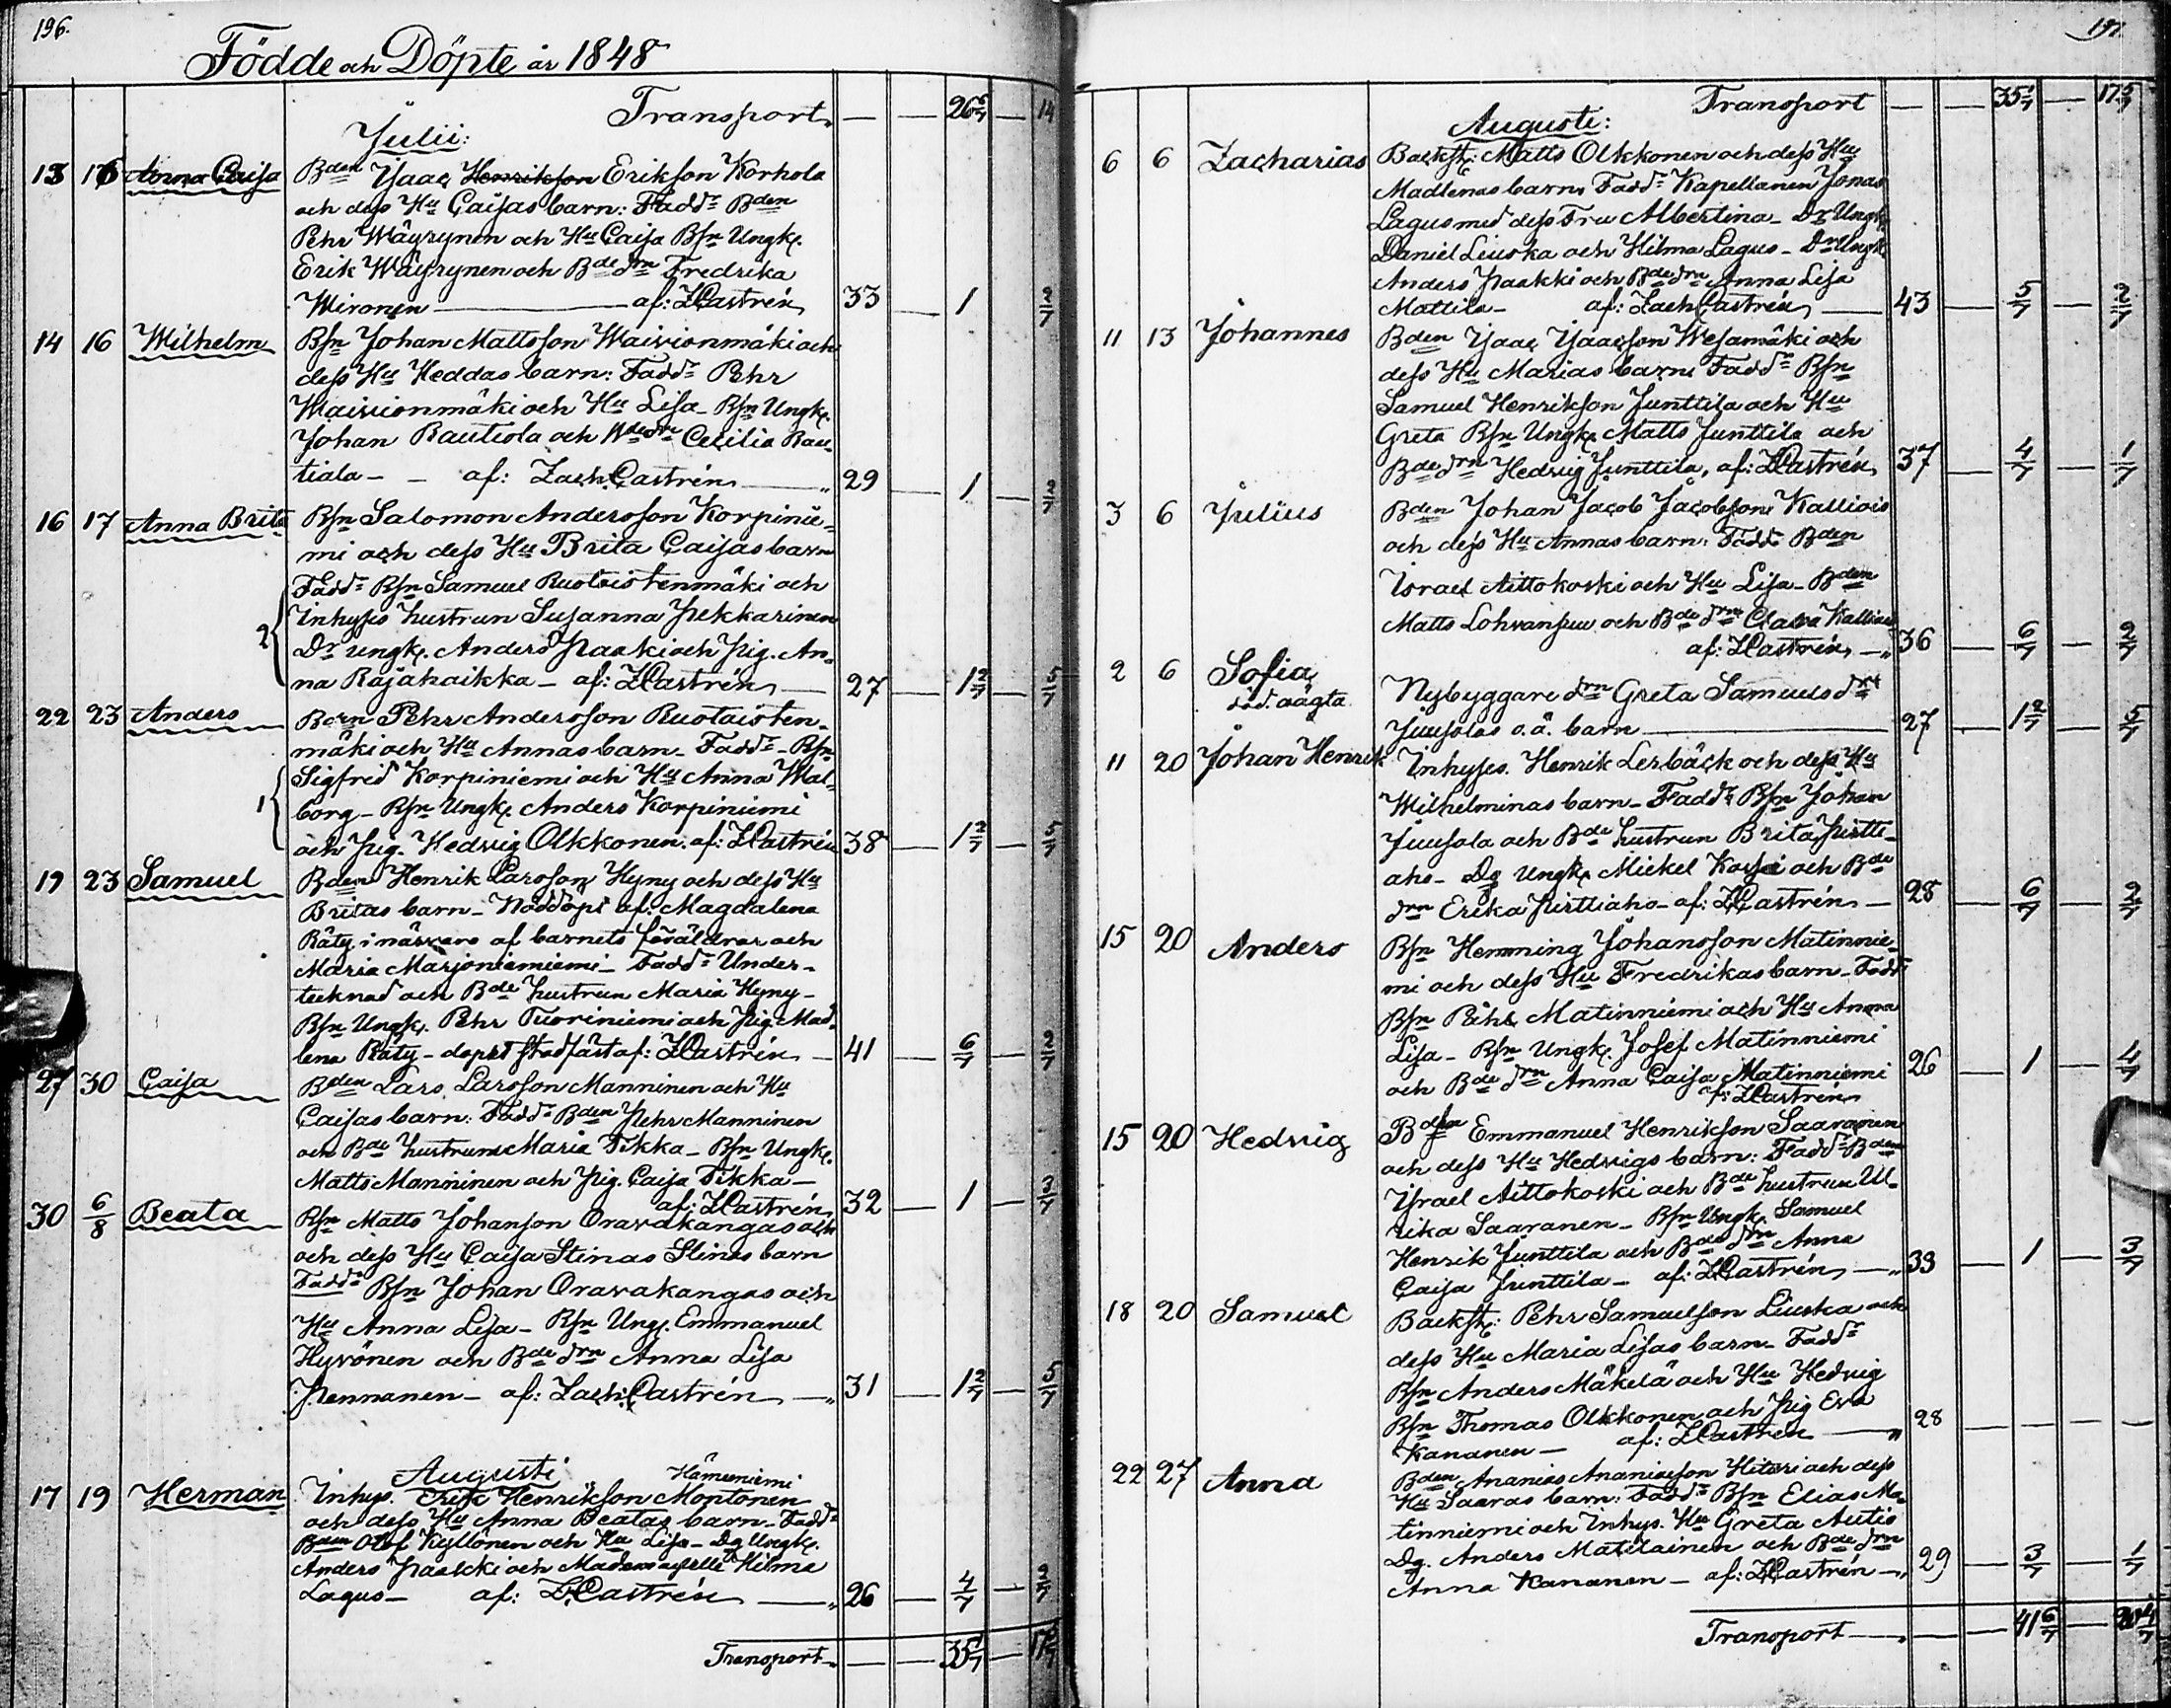 196.
Födde och Döpte år 1848
Transport — 26 6/7 — 14
Julii:
13 16 Anna Caisa Bden Isaac Henrikson Erikson Korhola
och dess Hu Caisas barn: Faddr Bden
Pehr Wäyrynen och Hu Caisa Bsn Ungk.
Erik Wäyrynen och Bde drn Fredrika
Mironen — af: ZCastrén 33 — 1 2/7
14 16 Wilhelm Bsn Johan Mattsson Waivionmäki och
dess Hu Heddas barn: Faddr Pehr
Waivionmäki och Hu Lisa – Bsn Ungk.
Johan Rautiola och Bde drn Cecilia Rau-
tiala – – af: Zach. Castrén — 29 — 1 — 2/7
16 17 Anna Brita Bsn Salomon Andersson Korpinie-
mi och dess Hu Brita Caisas barn
Faddr Bsn Samuel Ruotoistenmäki och
Inhyses hustrun Susanna Pekkarinen
2 Dr ungk. Anders Paaki och Pig. An-
na Räjähaikka – af: ZCastrén — 27 — 1 2/7 — 5/7
22 23 Anders Bden Pehr Andersson Ruotoisten-
mäki och Hu Annas barn – Faddr – Bsn
Sigfrid Korpiniemi och Hu Anna Wal-
1 borg – Bsn Ungk. Anders Korpiniemi
och Pig. Hedvig Olkkonen. af: ZCastrén 38 — 1 2/7 — 5/7
19 23 Samuel Bden Henrik Larsson Hyny och dess Hu
Britas barn – Nöddöpt af: Magdalena
Räty i närvaro af barnets föräldrar och
Maria Marjoniemiemi – Faddr Under-
tecknad och Bde hustrun Maria Hyny –
Bsn Ungk. Pehr Tuoriniemi och Pig. Mad-
lena Räty – dopet stadfäst af: ZCastrén — 41 — 6/7 — 2/7
27 30 Caisa Bden Lars Larsson Manninen och Hu
Caisas barn: Faddr Bden Pehr Manninen
och Bde hustrun Maria Tikka – Bsn Ungk.
Matts Manninen och Pig. Caisa Tikka –
af: ZCastrén 32 — 1 — 3/7
30 6/8 Beata Bsn Matts Johanson Oravakangas och
och dess Hu Caisa Stinas Stinas barn
Faddr Bsn Johan Oravakangas och
Hu Anna Lisa – Bsn Ung. Emmanuel
Hyvönen och Bde drn Anna Lisa
Pennanen – af: Zach: Castrén — 31 — 1 2/7 — 5/7
Augusti Hämeeniemi
17 19 Herman Inhys. Erik Henrikson Montonen
och dess Hu Anna Beatas barn – Faddr
Bden Olof Kyllönen och Hu Lisa – Dg Ungk.
Anders Paakki och Mademoiselle Hilma
Lagus – af: Z.Castrén — 26 — 4/7 — 2/7
Transport — — 35 1/7 — 17 5/7
197.
Transport — 35 1/7 — 17 5/7
Augusti:
6 6 Zacharias Backst: Matts Olkkonen och dess Hu
Madlenas barn Faddr Kapellanen Jonas
Lagus med dess Fru Albertina – Dr Ungk
Daniel Liuska och Hilma Lagus – Dr Ungk
Anders Paakki och Bde drn Anna Lisa
Mattila – af: Zach Castrén — 43 — 5/7 — 2/7
11 13 Johannes Bden Isaac Isaacson Wesamäki och
dess Hu Marias barn Faddr Bsn
Samuel Henrikson Junttila och Hu
Greta Bsn Ungk. Matts Junttila och
Bde drn Hedvig Junttila, af: ZCastrén 37 — 4/7 — 1/7
3 6 Julius Bden Johan Jacob Jacobson Kalliois
och dess Hu Annas barn: Faddr Bden
Israel Aittokoski och Hu Lisa – Bden
Matts Lohvansuu och Bde drn Clara Kalliois
af: ZCastrén — 36 — 6/7 — 2/7
2 6 Sofia Nybyggare drn Greta Samuelsdr
död. oägta Juusolas o.ä. barn — 27 — 1 2/7 — 5/7
11 20 Johan Henrik Inhyses. Henrik Lerbäck och dess Hu
Wilhelminas barn – Faddr Bsn Johan
Juusola och Bde hustrun Brita Pirtti-
aho – Dg Ungk. Mickel Korpi och Bde
drn Erika Pirttiaho – af: ZCastrén — 28 — 6/7 — 2/7
15 20 Anders Bsn Hemming Johansson Matinnie-
mi och dess Hu Fredrikas barn – Faddr
Bsn Pehr Matinniemi och Hu Anna
Lisa – Bsn Ungk. Josef Matinniemi
och Bde drn Anna Caisa Matinniemi 26 — 1 — 4/7
af: ZCastrén
15 20 Hedvig Bdsn Emmanuel Henrikson Saaranen
och dess Hu Hedvigs barn: Faddr Bden
Israel Aittokoski och Bde hustrun Ul-
rika Saaranen – Bsn Ungk. Samuel
Henrik Junttila och Bde drn Anna
Caisa Junttila – af: ZCastrén — 33 — 1 — 3/7
18 20 Samuel Backst: Pehr Samuelson Liuska och
dess Hu Maria Lisas barn – Faddr
Bsn Anders Mäkelä och Hu Hedvig
Bsn Thomas Olkkonen och Pig Eva
Kananen – af: ZCastrén — 28 — — —
22 27 Anna Bden Ananias Ananiasson Heteri och dess
Hu Saaras barn: Faddr Bsn Elias Ma-
tinniemi och Inhys. Hu Greta Autio
Dg. Anders Matilainen och Bde drn
Anna Kananen – af: ZCastrén — 29 — 3/7 — 1/7
Transport — — 41 6/7 — 20 4/7